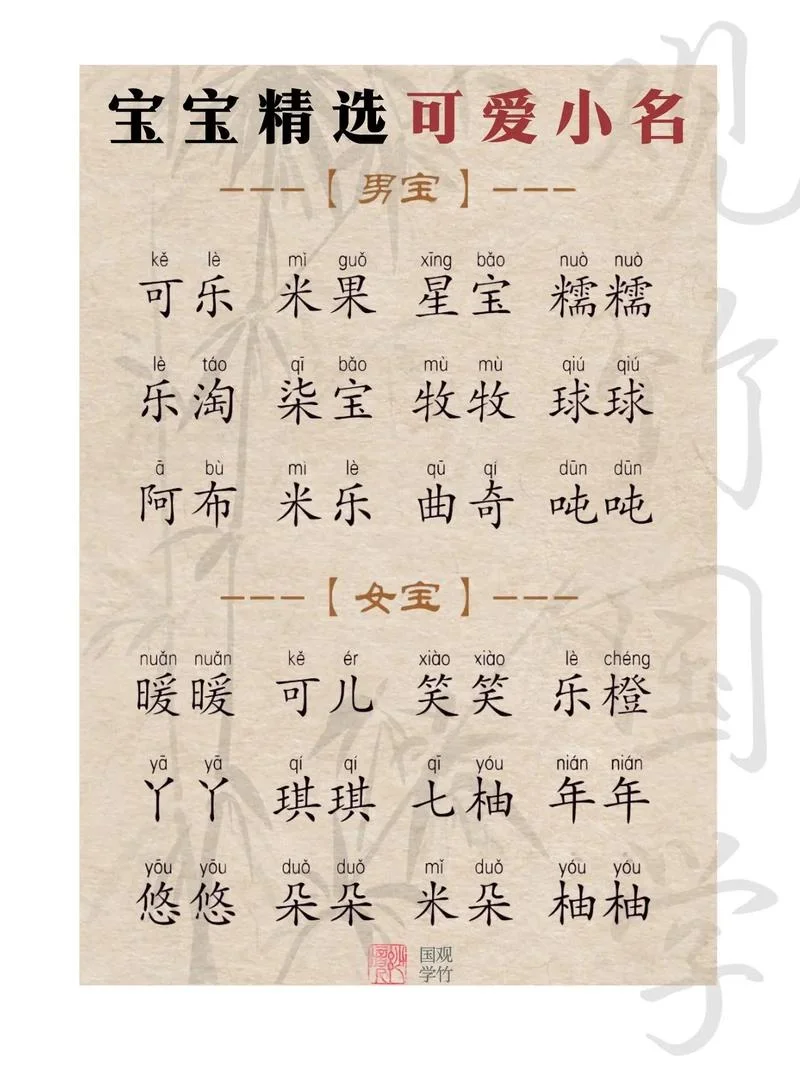 宝宝精选可爱小名
---【男宝】---
kě lè mì guǒ xīng bǎo nuò nuò
可乐 米果 星宝 糯糯
lè táo qī bǎo mù mù qiú qiú
乐淘 柒宝 牧牧 球球
ā bù mì lè qū qí dūn dūn
阿布 米乐 曲奇 吨吨
---【女宝】---
nuǎn nuǎn kě ér xiào xiào lè chéng
暖暖 可儿 笑笑 乐橙
yā yā qí qí qī yóu nián nián
丫丫 琪琪 七柚 年年
yōu yōu duǒ duǒ mǐ duǒ yóu yóu
悠悠 朵朵 米朵 柚柚
观竹
国学
观竹国学